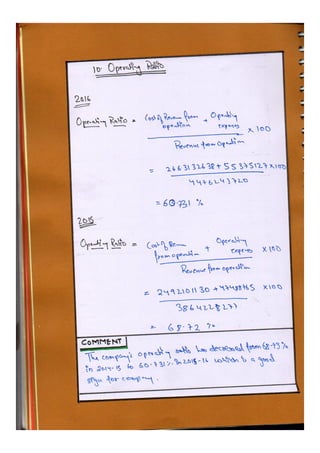 10. Operating Ratio
2016
Operating Ratio = Cost of Revenue from operation + Operating expenses × 100
Revenue from Operation
= 2663132638 + 55375127 × 100
4476243720
= 60.731 %
2015
Operating Ratio = Cost of Revenue from operation + Operating expenses × 100
Revenue from operation
= 2492101130 + × 100
3864228277
= 68.72 %
COMMENT
The company's operating ratio has decreased from %
in 2014-15 to 60.731% in 2015-16 which is a good
sign for company.